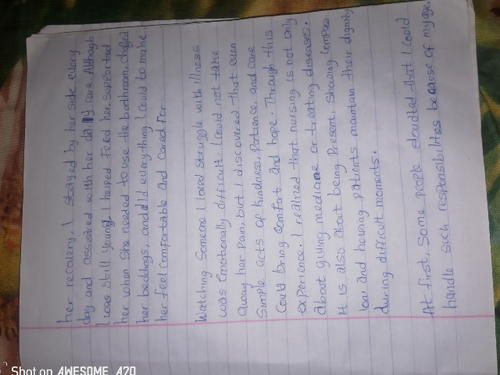 her recovery, I stayed by her side every
day and assisted with her daily care. Although
I was still young, I helped feed her, supported
her when she needed to use the bathroom, changed
her beddings, and did everything I could to make
her feel comfortable and cared for.
Watching someone I loved struggle with illness
was emotionally difficult. I could not take
away her pain, but I discovered that even
simple acts of kindness, patience, and care
could bring comfort and hope. Through this
experience, I realized that nursing is not only
about giving medicine or treating diseases.
It is also about being present, showing compas
sion and helping patients maintain their dignity
during difficult moments.
At first, some people doubted that I could
handle such responsibilities because of my age.
Shot on AWESOME A70